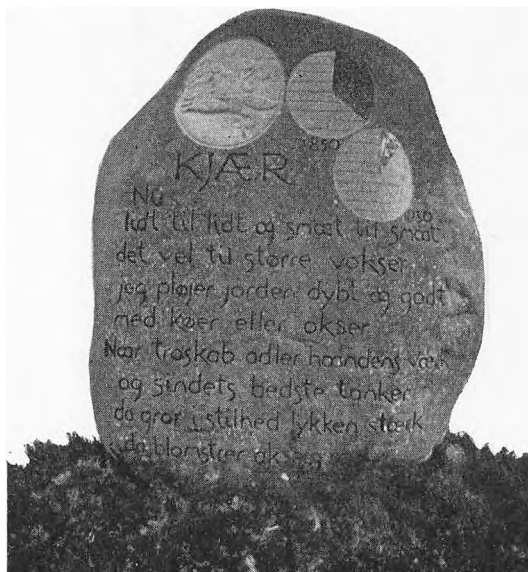 1850
KJÆR
1930
Nu
lidt til lidt og smæt til smæt
det vel til større vokser
jeg pløjer jorden dybt og godt
med køer eller okser
Naar troskab adler haandens værk
og sindets bedste tanker
da gror i stilhed lykken stærk
da blomstrer